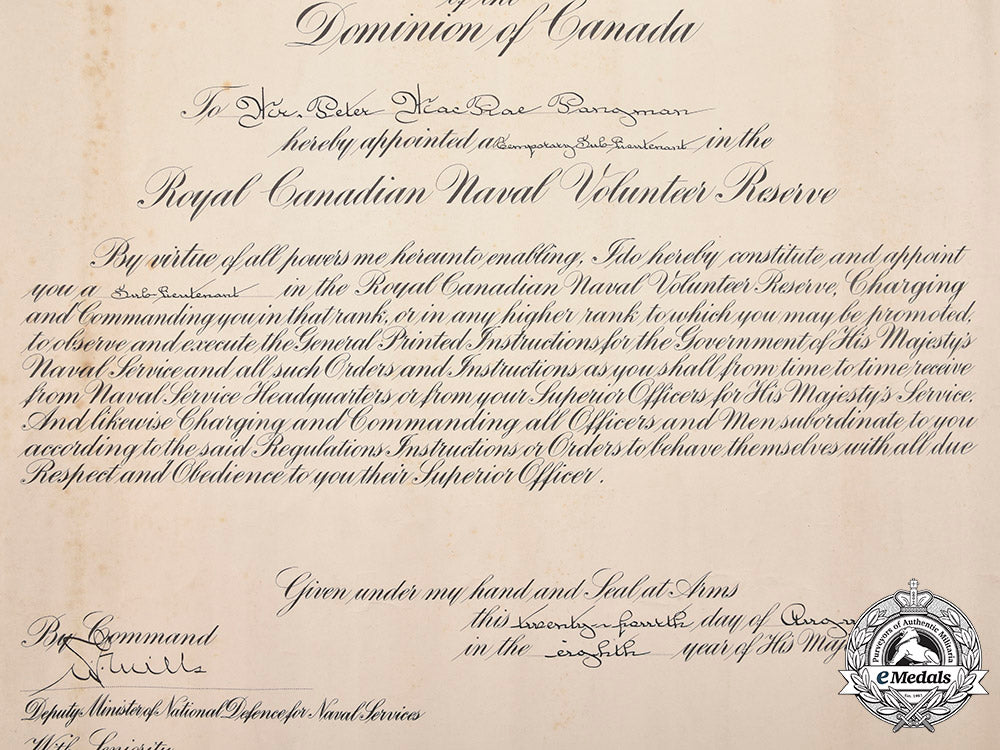 of the
Dominion of Canada
To Mr. Peter MacRae Pangman
hereby appointed a Temporary Sub-Lieutenant in the
Royal Canadian Naval Volunteer Reserve
By virtue of all powers me hereunto enabling, I do hereby constitute and appoint
you a Sub-Lieutenant in the Royal Canadian Naval Volunteer Reserve, Charging
and Commanding you in that rank, or in any higher rank to which you may be promoted,
to observe and execute the General Printed Instructions for the Government of His Majesty's
Naval Service and all such Orders and Instructions as you shall from time to time receive
from Naval Service Headquarters or from your Superior Officers for His Majesty's Service.
And likewise Charging and Commanding all Officers and Men subordinate to you
according to the said Regulations Instructions or Orders to behave themselves with all due
Respect and Obedience to you their Superior Officer.
Given under my hand and Seal at Arms
this twenty-fourth day of
in the eighth year of His
By Command
Deputy Minister of National Defence for Naval Services
With Seniority
Purveyors of Authentic Militaria
eMedals